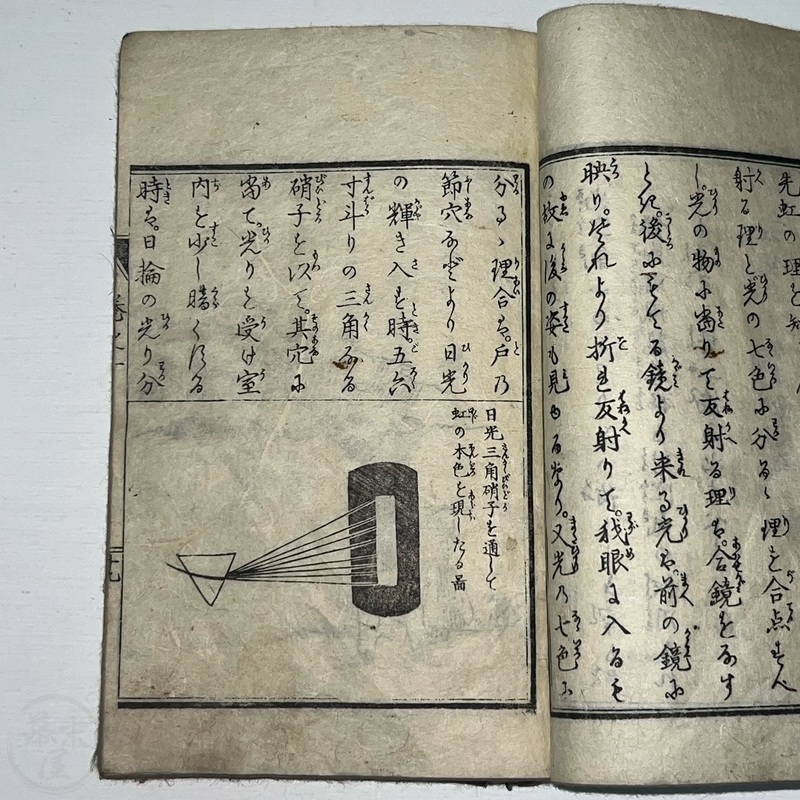 先虹の理を
射る理と光の七色に分るゝ理を合点すべ
し。光の物に當りて反射る理は。合鏡をなす
とき。後にする鏡より来る光は。前の鏡に
映り。それより折れ反射りて。我眼に入るも
の故に後の姿も見ゆるなり。又光の七色に
分るゝ理合は。戸の
節穴などより日光
の輝き入る時。五六
寸斗りの三角なる
硝子を以て。其穴に
當て。光りを受け室
内を少し暗くする
時は。日輪の光り分
日光三角硝子を通して
虹の本色を現したる圖